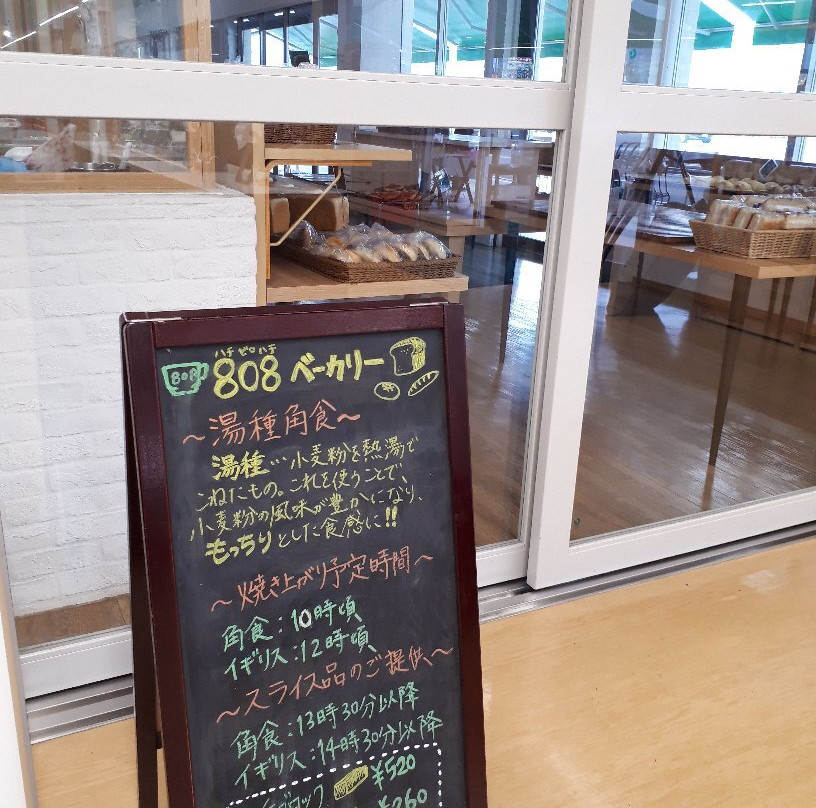 ハチ ゼロ ハチ
808 808 ベーカリー
～湯種角食～
湯種…小麦粉を熱湯で
こねたもの。これを使うことで、
小麦粉の風味が豊かになり、
もっちりとした食感に!!
～焼き上がり予定時間～
角食:10時頃
イギリス:12時頃
～スライス品のご提供～
角食:13時30分以降
イギリス:14時30分以降
ブロック ¥520
¥260